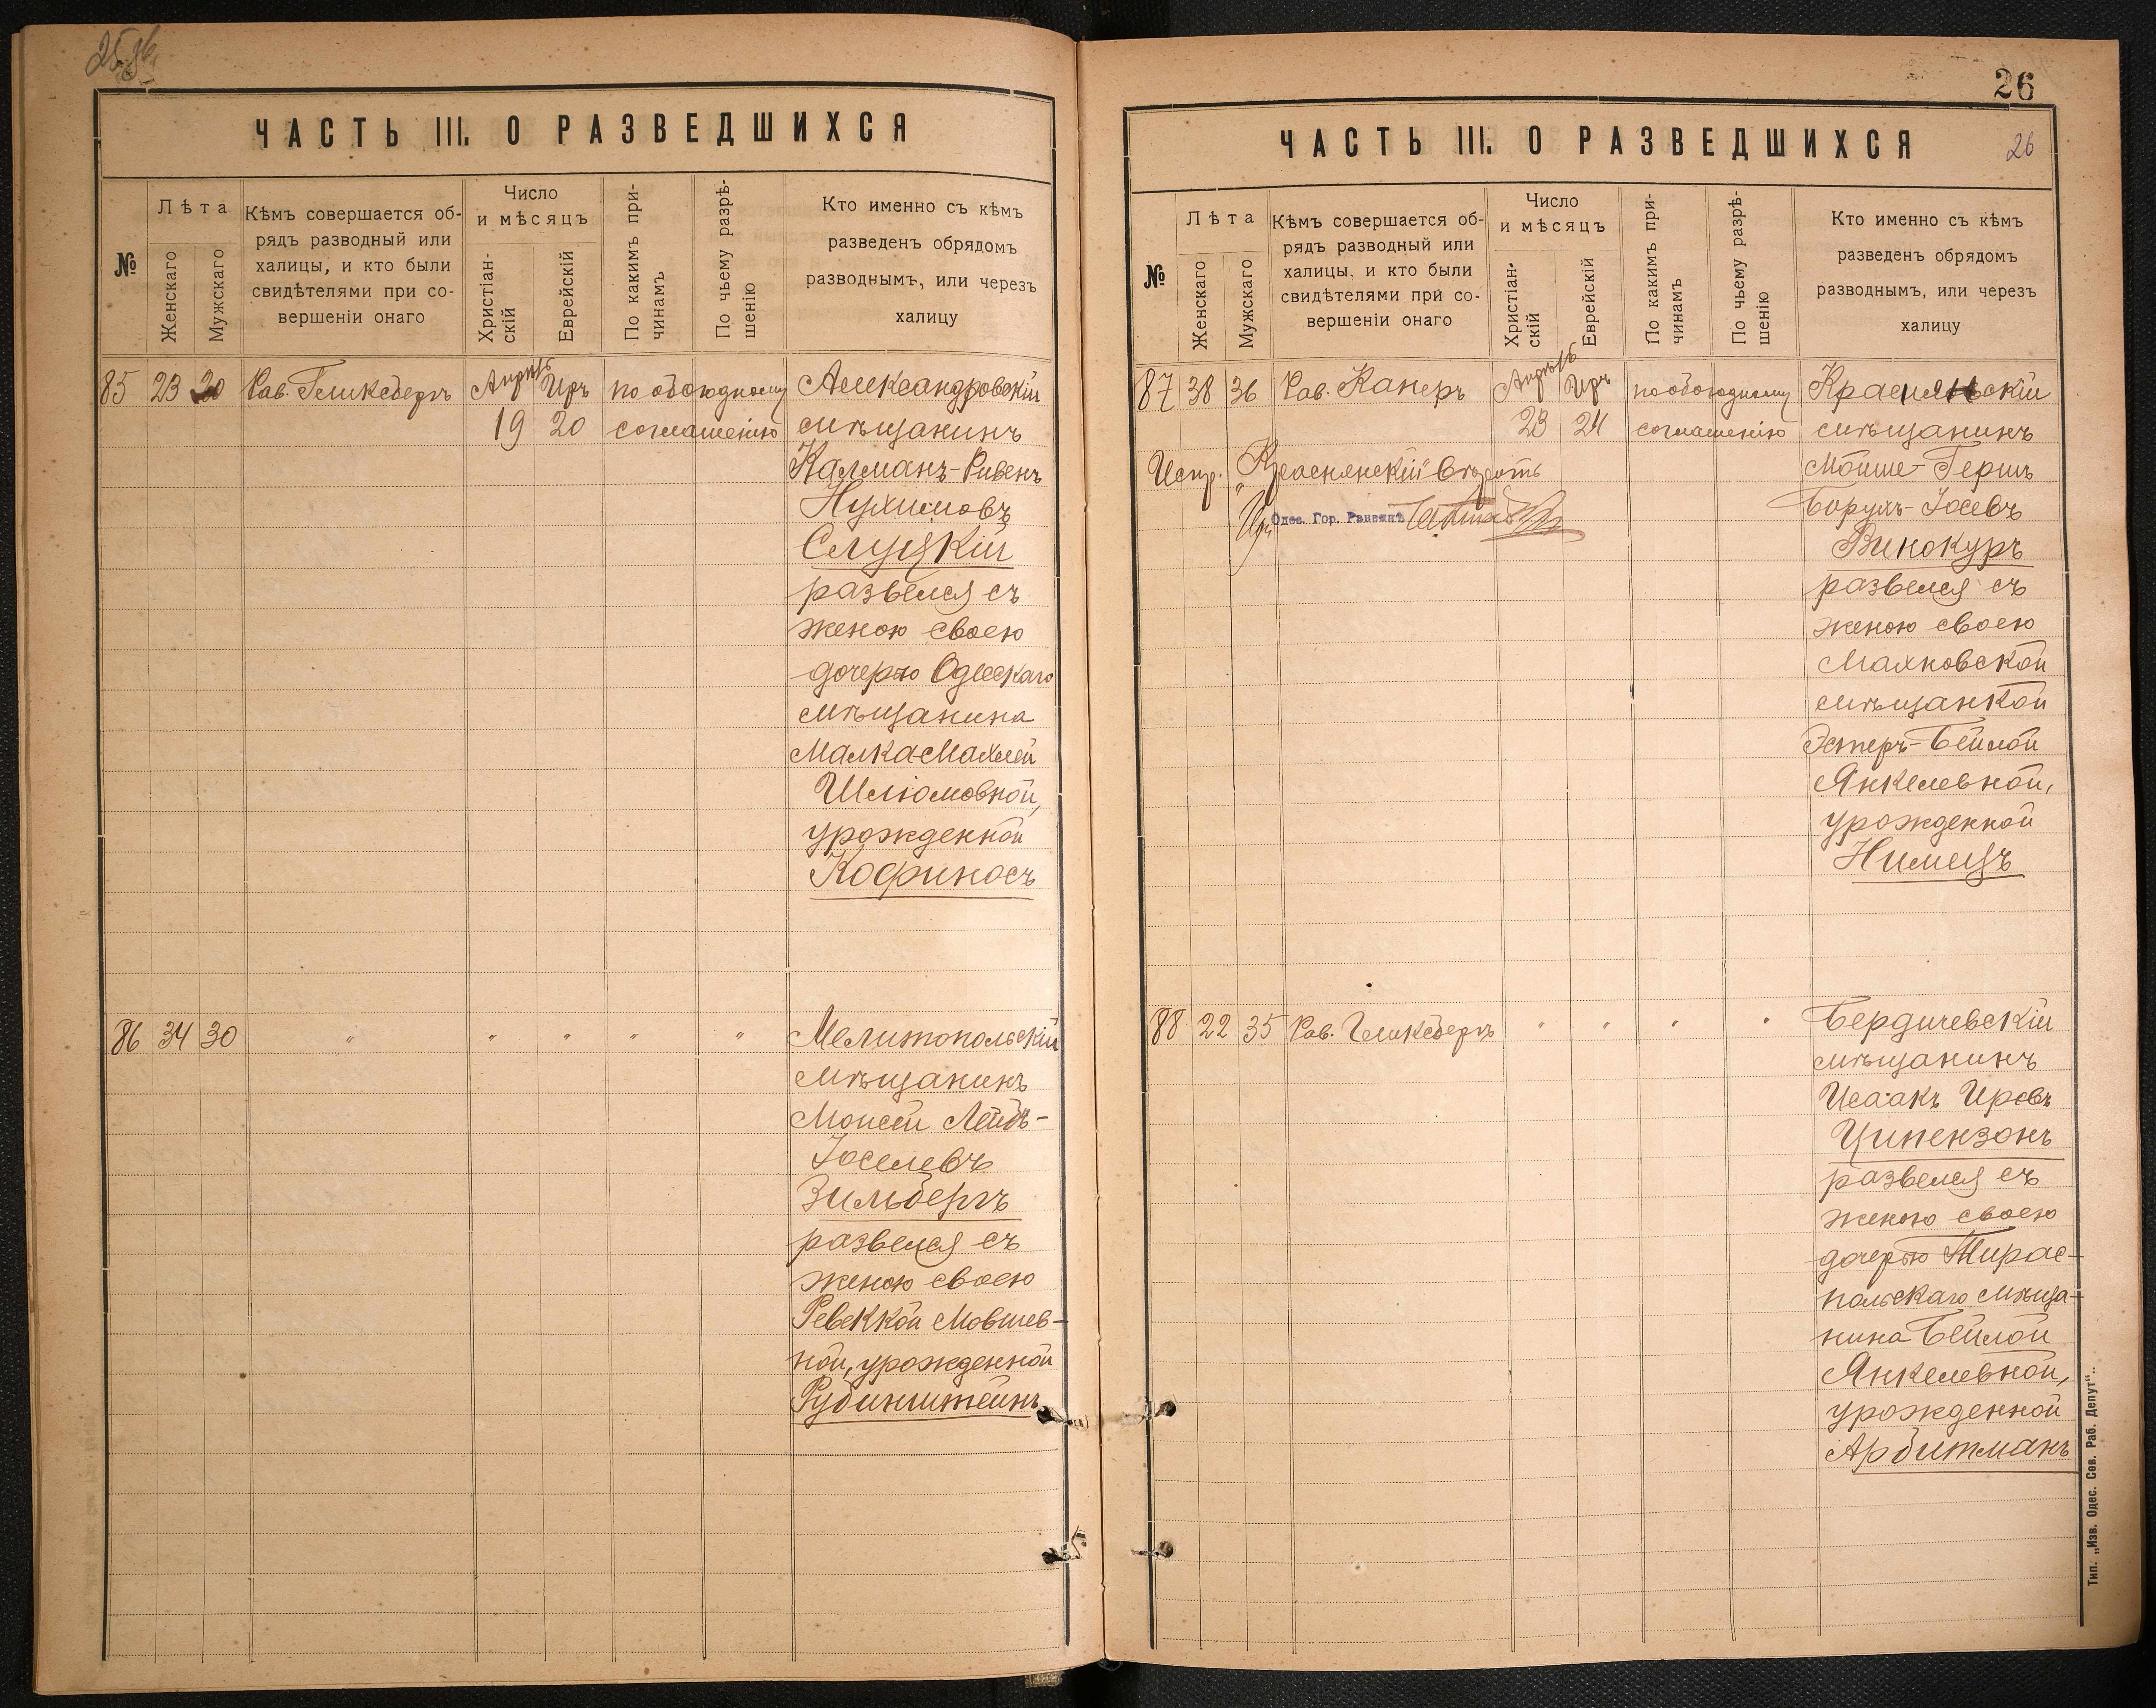 ЧАСТЬ III. О РАЗВЕДШИХСЯ
№
Лѣта
Женскаго
Мужскаго
Кѣмъ совершается об-
рядъ разводный или
халицы, и кто были
свидѣтелями при со-
вершеніи онаго
Число
и мѣсяцъ
Христіан-
скій
Еврейскій
По какимъ при-
чинамъ
По чьему разрѣ-
шенію
Кто именно съ кѣмъ
разведенъ обрядомъ
разводнымъ, или черезъ
халицу
85 23 30 Рав. Гликсбергъ Апрѣль Иръ по обоюдному Александровскій
19 20 соглашенію мѣщанинъ
Калманъ-Ривенъ
Нухимовъ
Слуцкій
развелся съ
женою своею
дочерью Одесскаго
мѣщанина
Малка-Махлей
Шліомовной,
урожденной
Кофиносъ
86 34 30 " " " " " Мелитопольскій
мѣщанинъ
Моисей Лейбъ-
Іоселевъ
Зильбергъ
развелся съ
женою своею
Ревеккой Мовшев-
ной, урожденной
Рубинштейнъ
26
ЧАСТЬ III. О РАЗВЕДШИХСЯ 26
№
Лѣта
Женскаго
Мужскаго
Кѣмъ совершается об-
рядъ разводный или
халицы, и кто были
свидѣтелями при со-
вершеніи онаго
Число
и мѣсяцъ
Христіан-
скій
Еврейскій
По какимъ при-
чинамъ
По чьему разрѣ-
шенію
Кто именно съ кѣмъ
разведенъ обрядомъ
разводнымъ, или черезъ
халицу
87 38 36 Рав. Канеръ Апрѣль Иръ по обоюдному Краснянскій
23 24 соглашенію мѣщанинъ
Испр. „Краснянскій" вѣрить
Одес. Гор. Раввинъ
Мойше-Гершъ
Борухъ-Іосевъ
Винокуръ
развелся съ
женою своею
Махновской
мѣщанкой
Эстеръ-Бейлой
Янкелевной,
урожденной
Нимецъ
88 22 35 Рав. Гликсбергъ " " " " Бердичевскій
мѣщанинъ
Исаакъ Ировъ
Ципензонъ
развелся съ
женою своею
дочерью Тирас-
польскаго мѣща-
нина Бейлой
Янкелевной,
урожденной
Арбитманъ
Тип. „Изв. Одес. Сов. Раб. Депут".